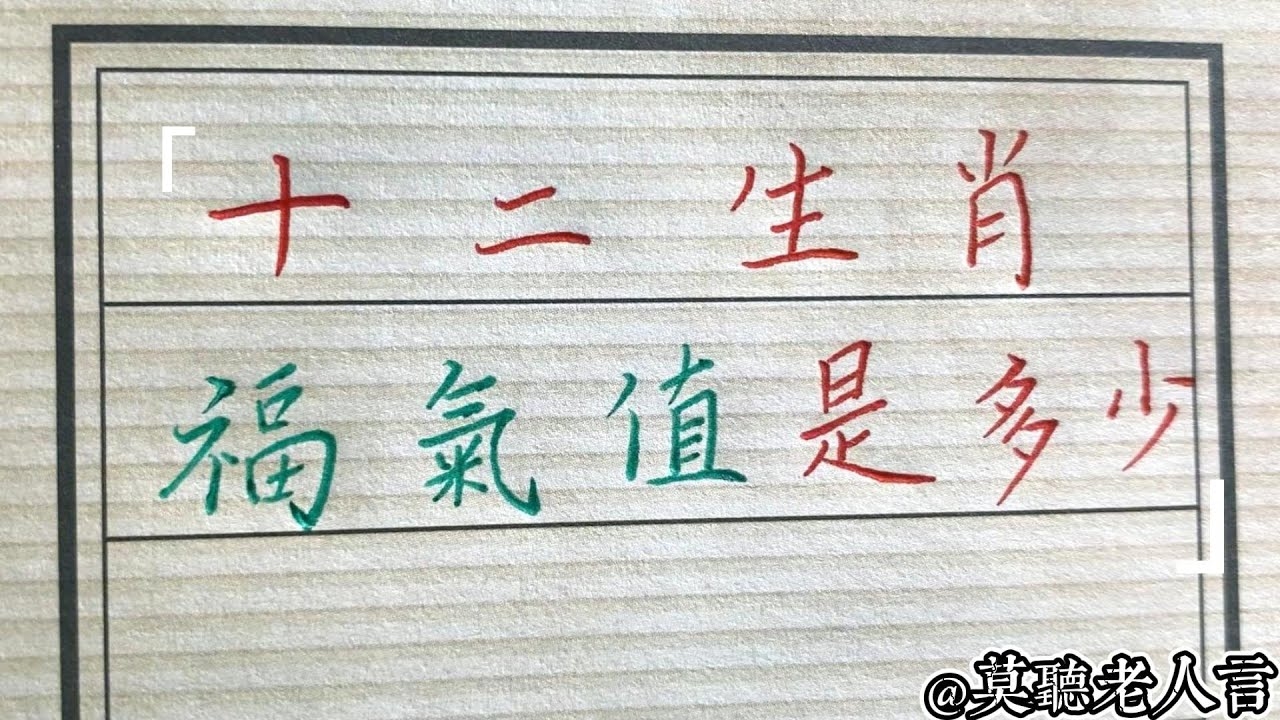 「十二生肖
福氣值是多少」
@莫聽老人言